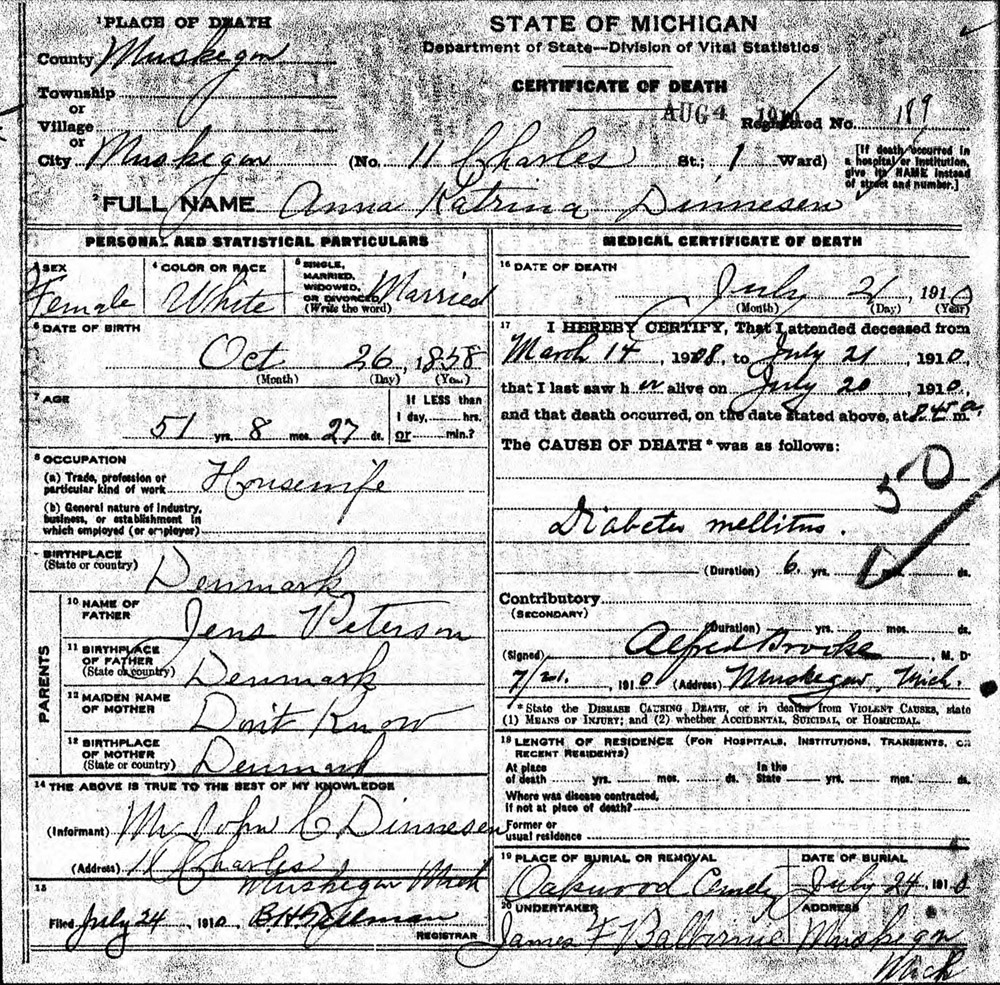 STATE OF MICHIGAN
Department of State—Division of Vital Statistics
CERTIFICATE OF DEATH
AUG 4 1910
Registered No. 189
1 PLACE OF DEATH
County Muskegon
Township
or
Village
or
City Muskegon (No. 11 Charles St.; 1 Ward)
[If death occurred in
a hospital or institution,
give its NAME instead
of street and number.]
2 FULL NAME Anna Katrina Dinnesen
PERSONAL AND STATISTICAL PARTICULARS
3 SEX
Female
4 COLOR OR RACE
White
5 SINGLE,
MARRIED,
WIDOWED,
OR DIVORCED
(Write the word)
Married
6 DATE OF BIRTH
Oct 26, 1858
(Month) (Day) (Year)
7 AGE
51 yrs. 8 mos. 27 ds.
If LESS than
1 day, hrs.
or min.?
8 OCCUPATION
(a) Trade, profession or
particular kind of work Housewife
(b) General nature of industry,
business, or establishment in
which employed (or employer)
BIRTHPLACE
(State or country)
Denmark
PARENTS
10 NAME OF
FATHER
Jens Peterson
11 BIRTHPLACE
OF FATHER
(State or country)
Denmark
12 MAIDEN NAME
OF MOTHER
Don't Know
13 BIRTHPLACE
OF MOTHER
(State or country)
Denmark
14 THE ABOVE IS TRUE TO THE BEST OF MY KNOWLEDGE
(Informant) Mr John C Dinnesen
(Address) 11 Charles
Muskegon Mich
15
Filed July 24, 1910 B.H. Tellman
REGISTRAR
MEDICAL CERTIFICATE OF DEATH
16 DATE OF DEATH
July 21, 1910
(Month) (Day) (Year)
17 I HEREBY CERTIFY, That I attended deceased from
March 14, 1908, to July 21, 1910,
that I last saw h er alive on July 20, 1910,
and that death occurred, on the date stated above, at 8.45 a. m.
The CAUSE OF DEATH* was as follows:
50
Diabetes mellitus.
(Duration) 6 yrs. mos. ds.
Contributory
(SECONDARY)
(Duration) yrs. mos. ds.
(Signed) Alfred Brooke, M. D.
7/21, 1910 (Address) Muskegon, Mich.
*State the DISEASE CAUSING DEATH, or in deaths from VIOLENT CAUSES, state
(1) MEANS OF INJURY; and (2) whether ACCIDENTAL, SUICIDAL, or HOMICIDAL.
18 LENGTH OF RESIDENCE (FOR HOSPITALS, INSTITUTIONS, TRANSIENTS, OR
RECENT RESIDENTS)
At place
of death yrs. mos. ds.
In the
State yrs. mos. ds.
Where was disease contracted,
if not at place of death?
Former or
usual residence
19 PLACE OF BURIAL OR REMOVAL
Oakwood Cemety
DATE OF BURIAL
July 24, 1910
20 UNDERTAKER
James F Balbirnie
ADDRESS
Muskegon
Mich